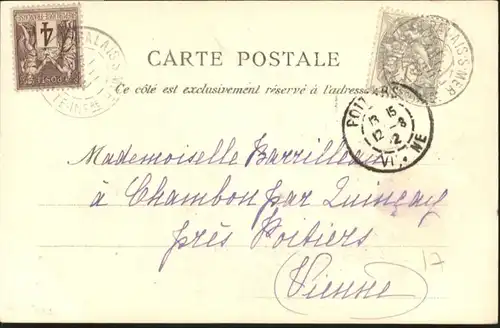 CARTE POSTALE
Ce côté est exclusivement réservé à l'adresse
4
POITIERS
13 15
12 - 8
VIENNE
Mademoiselle Barrilleau
à Chambon par Quinçay
près Poitiers
Vienne
17